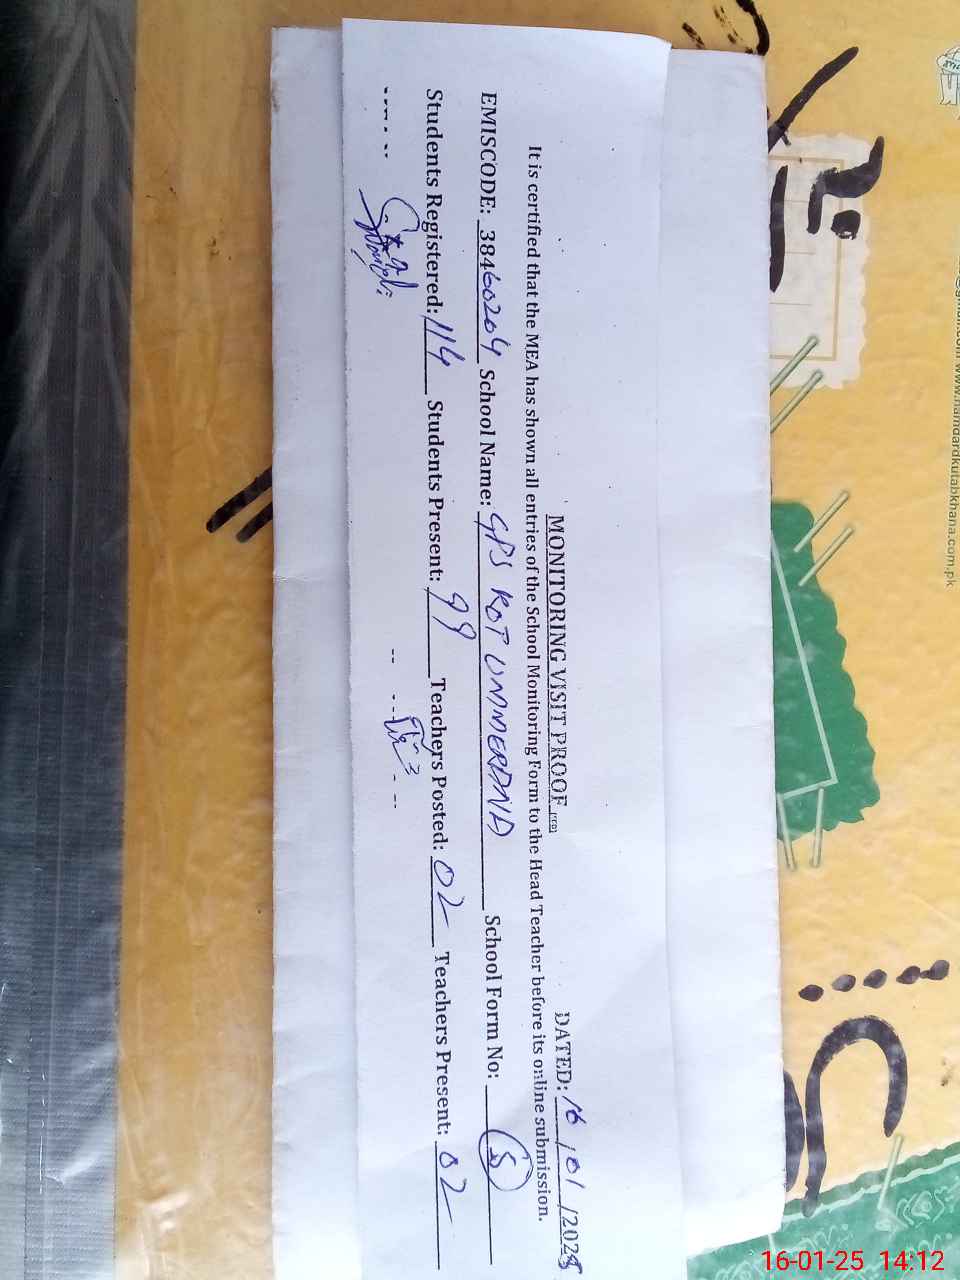 MONITORING VISIT PROOF
DATED: 16/01/2025
It is certified that the MEA has shown all entries of the School Monitoring Form to the Head Teacher before its online submission.
EMISCODE: 38460204 School Name: GPS KOT UMMERANA School Form No: 5
Students Registered: 114 Students Present: 99 Teachers Posted: 02 Teachers Present: 02
hamdardkutabkhana.com.pk
16-01-25 14:12